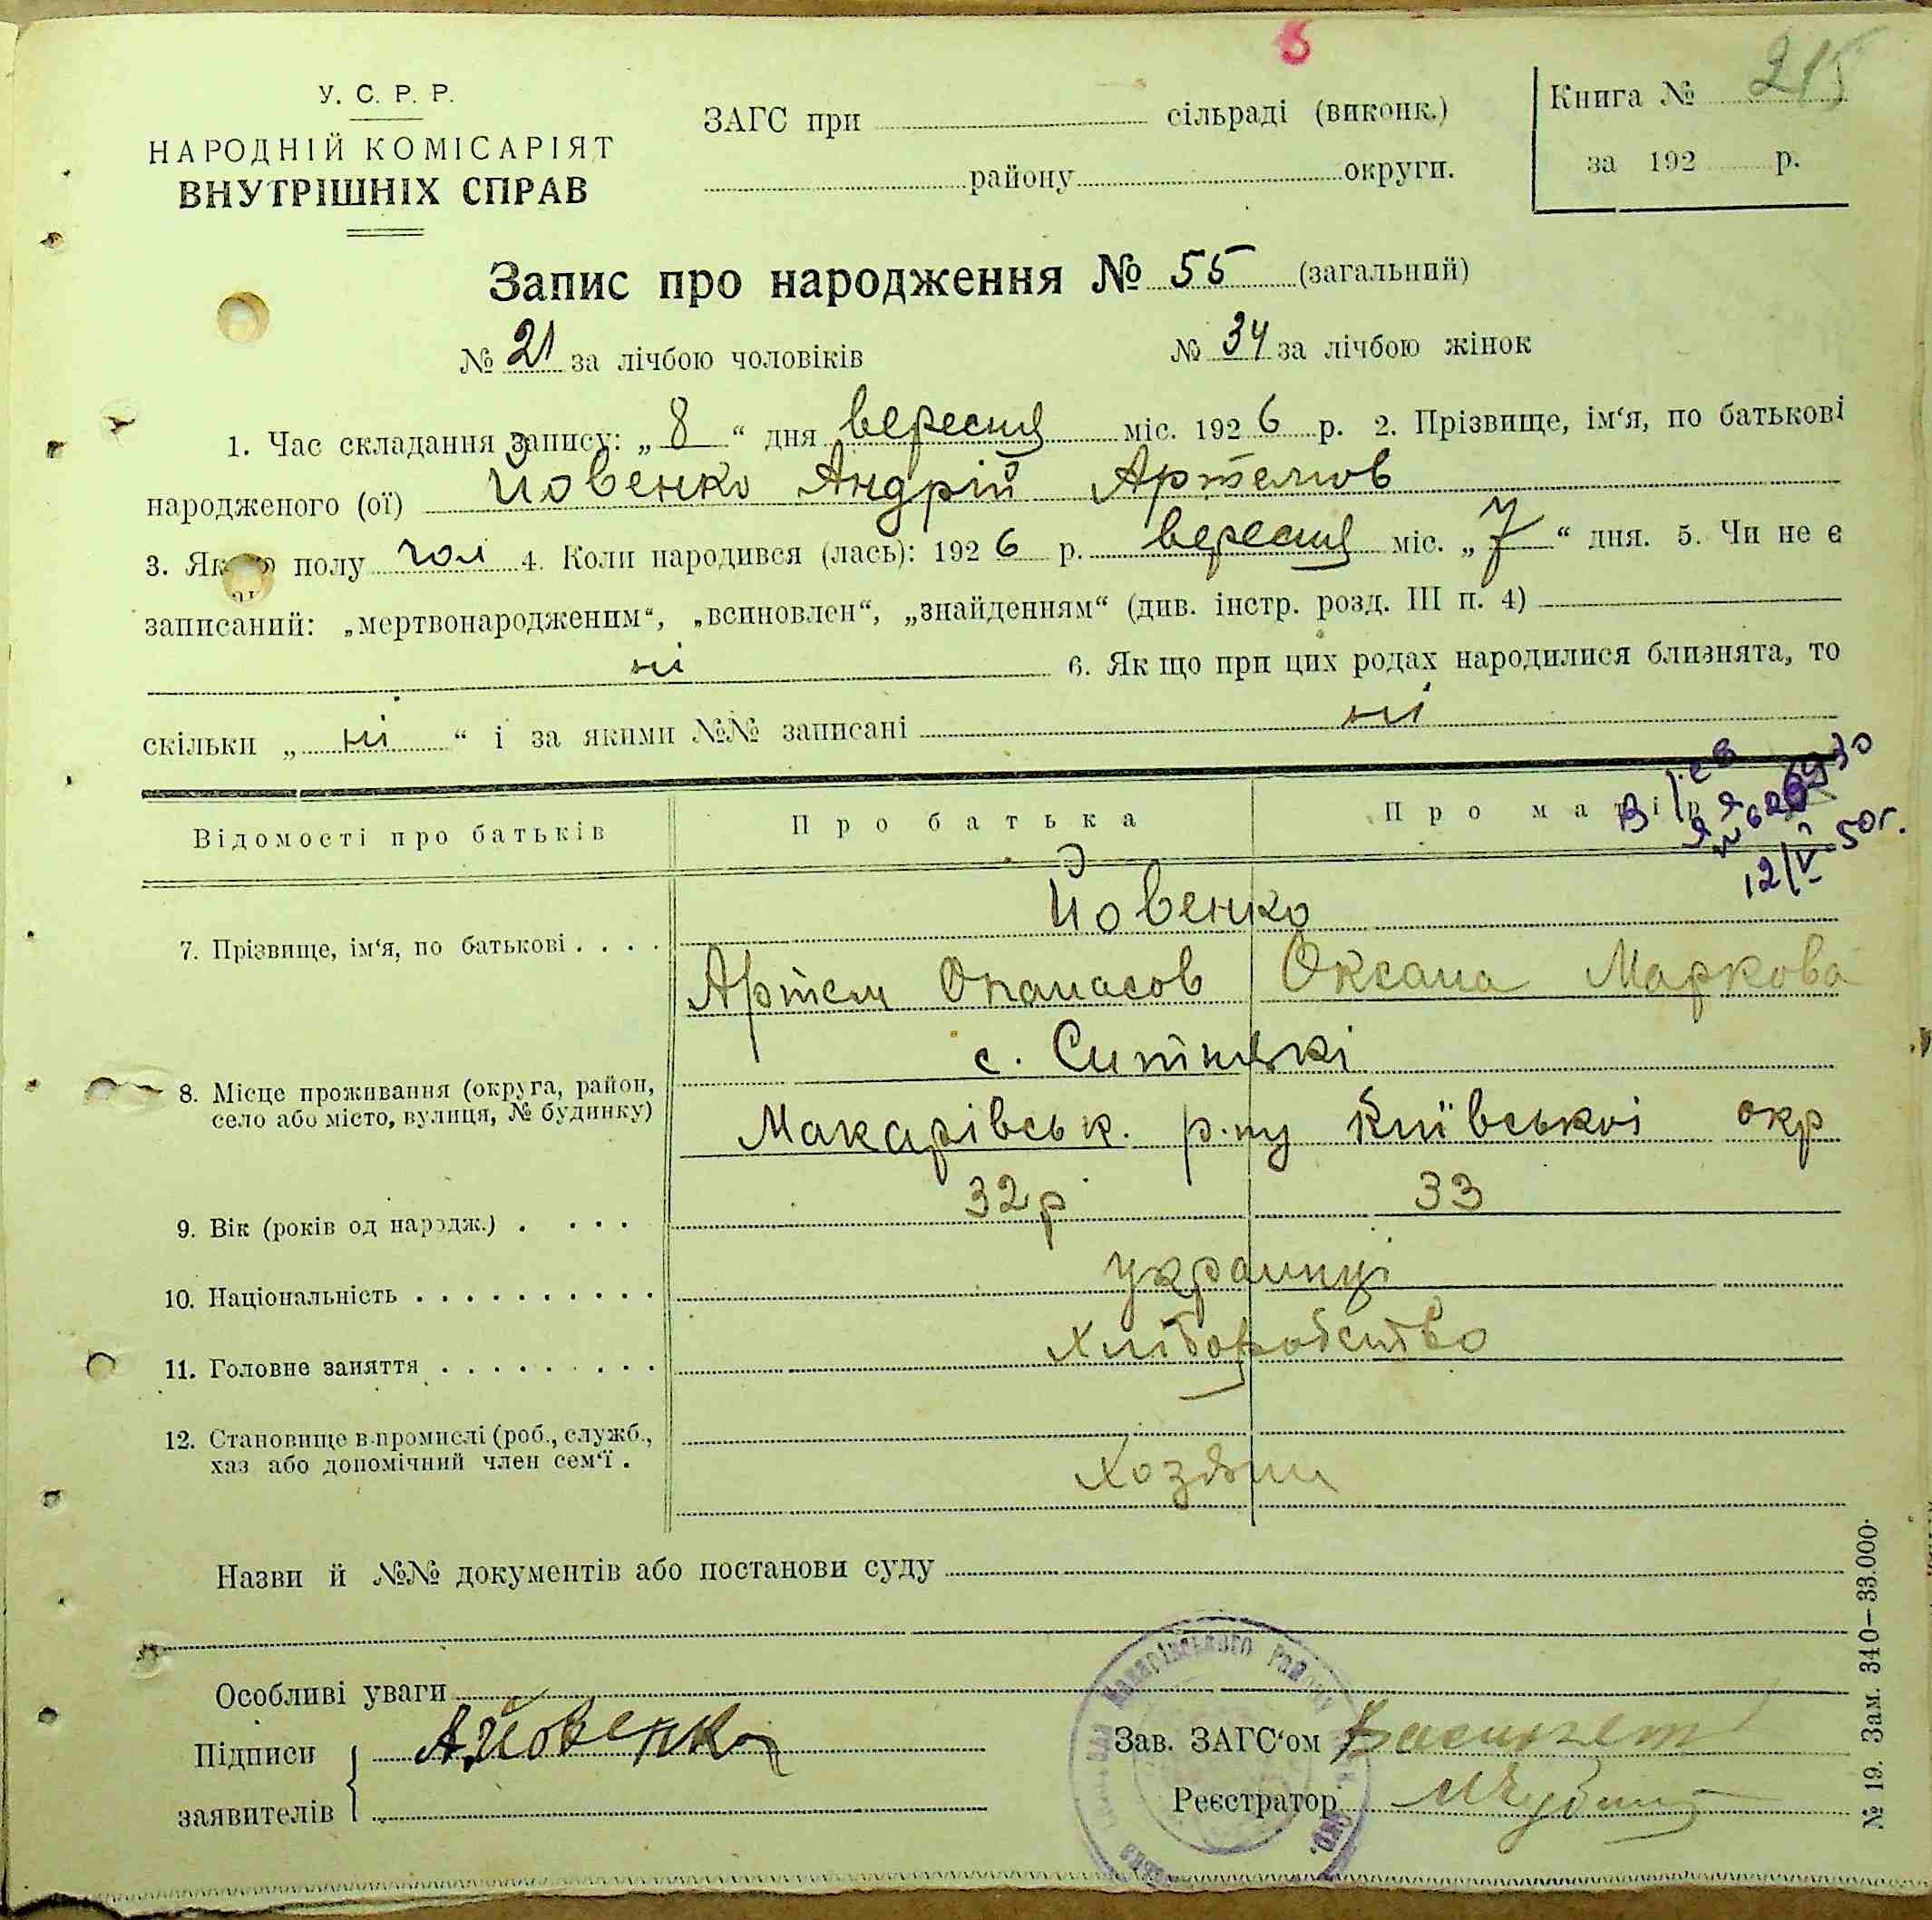 215
У. С. Р. Р.
НАРОДНІЙ КОМІСАРІЯТ
ВНУТРІШНІХ СПРАВ
ЗАГС при сільраді (виконк.)
району округи.
Книга №
за 192 р.
Запис про народження № 55 (загальний)
№ 21 за лічбою чоловіків № 34 за лічбою жінок
1. Час складання запису: „ 8 “ дня вересня міс. 1926 р. 2. Прізвище, ім‘я, по батькові
народженого (ої) Йовенко Андрій Артемов
3. Якого полу чол 4. Коли народився (лась): 1926 р. вересня міс. „ 7 “ дня. 5. Чи не є
записаний: „мертвонародженим“, „всиновлен“, „знайденням“ (див. інстр. розд. III п. 4)
ні 6. Якщо при цих родах народилися близнята, то
скільки „ ні “ і за якими №№ записані ні
Відомості про батьків Про батька Про матір
12/V 50г.
7. Прізвище, ім‘я, по батькові . . . . Йовенко
Артем Опанасов Оксана Маркова
8. Місце проживання (округа, район,
село або місто, вулиця, № будинку)
с. Ситняки
Макарівськ. р-ну Київської окр
9. Вік (років од народж.) . . . . 32р 33
10. Національність . . . . . . . . . . українці
11. Головне заняття . . . . . . . . . Хліборобство
12. Становище в промислі (роб., служб.,
хаз або допомічний член сем‘ї .
Хозяїн
Назви й №№ документів або постанови суду
Особливі уваги
Підписи А.Йовенко
заявителів
Зав. ЗАГС‘ом
Реєстратор
Макарівського Району
№ 19. Зам. 340—33.000.